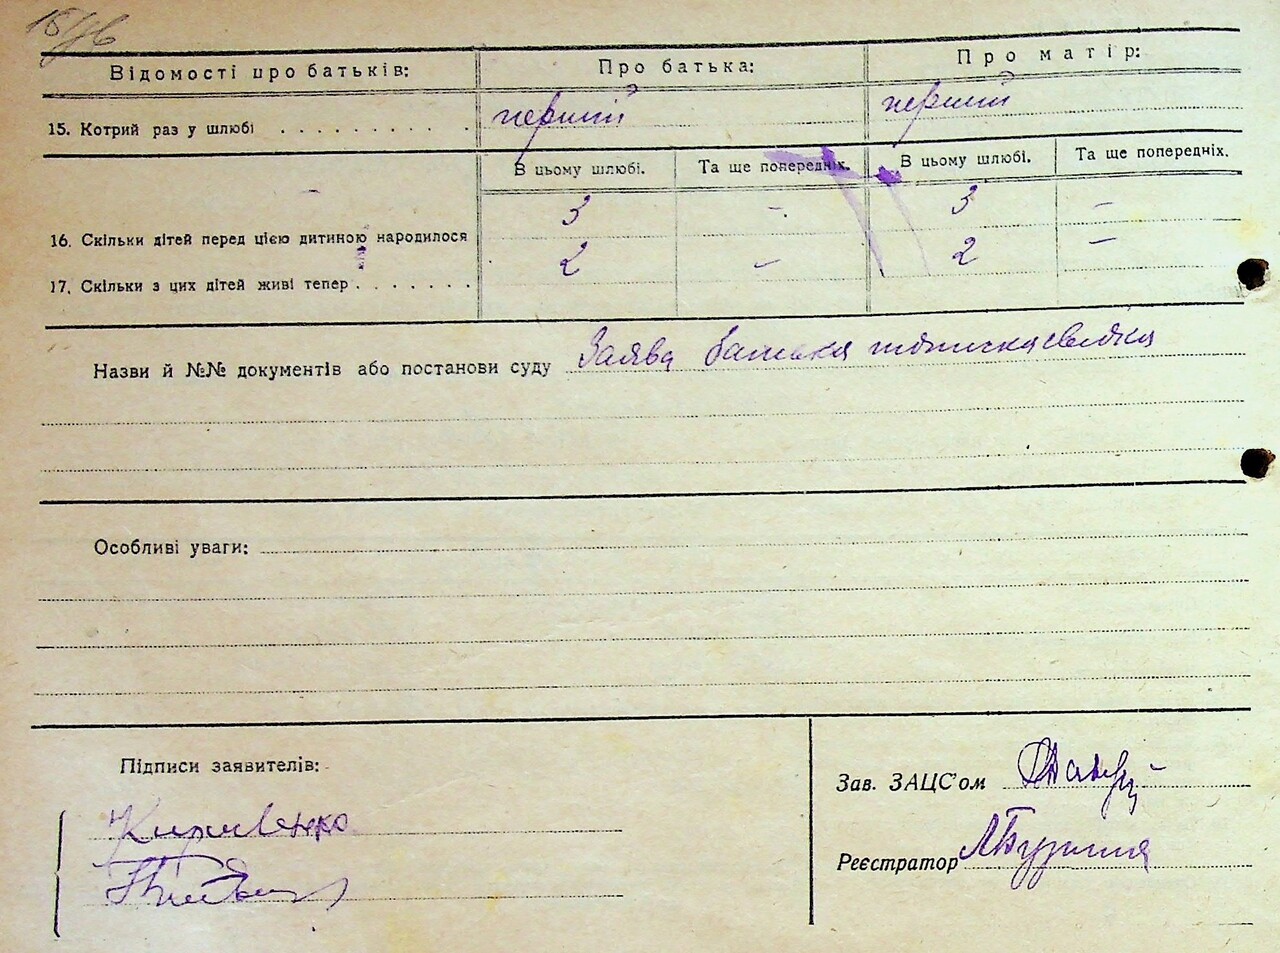 Відомості про батьків: Про батька: Про матір:
15. Котрий раз у шлюбі . . . . . . . . . . перший перший
В цьому шлюбі. Та ще попередніх. В цьому шлюбі. Та ще попередніх.
16. Скільки дітей перед цією дитиною народилося 3 - 3 -
17. Скільки з цих дітей живі тепер . . . . . . . 2 - 2 -
Назви й №№ документів або постанови суду Заява батька
Особливі уваги:
Підписи заявителів:
Зав. ЗАЦС'ом
Кириленко
Реєстратор